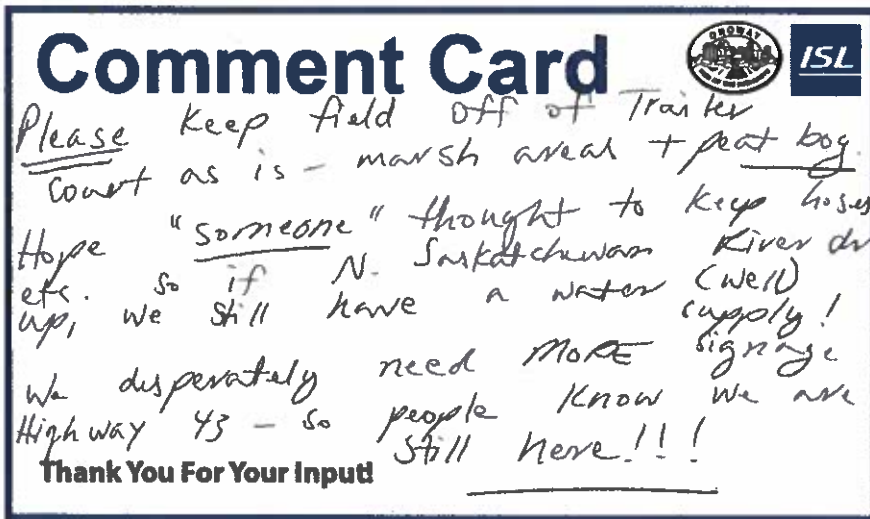 Comment Card
ONOWAY
ISL
Please Keep field off of Trailer
Court as is - marsh areas + peat bog.
Hope "someone" thought to keep hoses
etc. so if N. Saskatchewan River
up, we still have a water (well)
supply!
We desperately need MORE signage
Highway 43 - so people know we are
still here!!!
Thank You For Your Input!